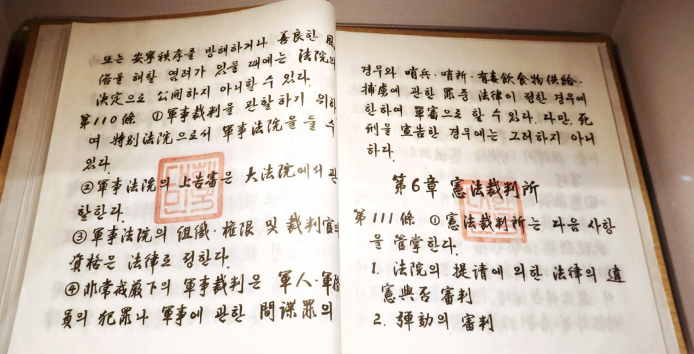 또는 安寧秩序를 방해하거나 善良한 風
俗을 해할 염려가 있을 때에는 法院의
決定으로 公開하지 아니할 수 있다.
第110條 ①軍事裁判을 관할하기 위하
여 特別法院으로서 軍事法院을 둘 수
있다.
②軍事法院의 上告審은 大法院에서 관
할한다.
③軍事法院의 組織·權限 및 裁判官의
資格은 法律로 정한다.
④非常戒嚴下의 軍事裁判은 軍人·軍務
員의 犯罪나 軍事에 관한 間諜罪의
경우와 哨兵·哨所·有毒飮食物供給·
捕虜에 관한 罪중 法律이 정한 경우에
한하여 單審으로 할 수 있다. 다만, 死
刑을 宣告한 경우에는 그러하지 아니
하다.
第6章 憲法裁判所
第111條 ①憲法裁判所는 다음 사항
을 管掌한다.
1. 法院의 提請에 의한 法律의 違
憲與否 審判
2. 彈劾의 審判